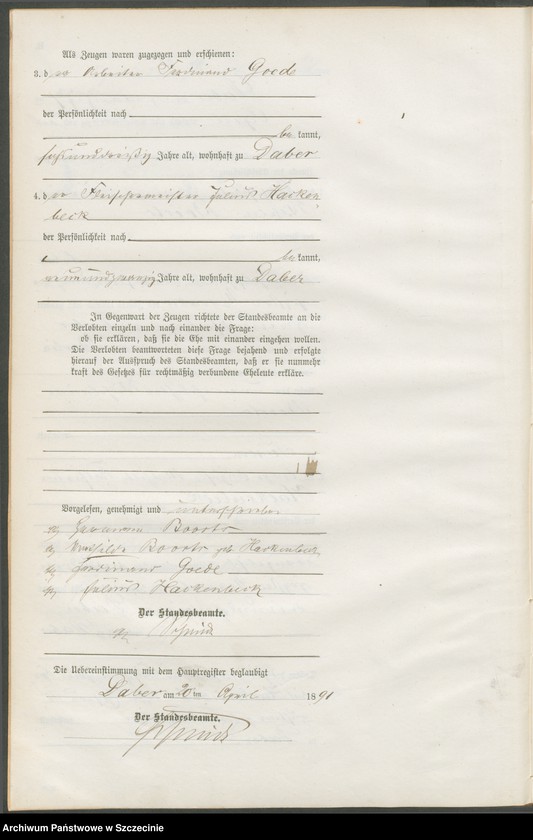 Als Zeugen waren zugezogen und erschienen:
3. der Arbeiter Ferdinand Goede
der Persönlichkeit nach
be kannt,
sechsunddreißig Jahre alt, wohnhaft zu Daber
4. der Fleischermeister Julius Hacken
beck
der Persönlichkeit nach
be kannt,
neunundzwanzig Jahre alt, wohnhaft zu Daber
In Gegenwart der Zeugen richtete der Standesbeamte an die
Verlobten einzeln und nach einander die Frage:
ob sie erklären, daß sie die Ehe mit einander eingehen wollen.
Die Verlobten beantworteten diese Frage bejahend und erfolgte
hierauf der Ausspruch des Standesbeamten, daß er sie nunmehr
kraft des Gesetzes für rechtmäßig verbundene Eheleute erkläre.
Vorgelesen, genehmigt und unterschrieben
gez. Hermann
gez. Mathilde geb. Hackenbeck
gez. Ferdinand Goede
gez. Julius Hackenbeck
Der Standesbeamte.
gez.
Die Uebereinstimmung mit dem Hauptregister beglaubigt
Daber am 20 ten April 1891
Der Standesbeamte.
Archiwum Państwowe w Szczecinie